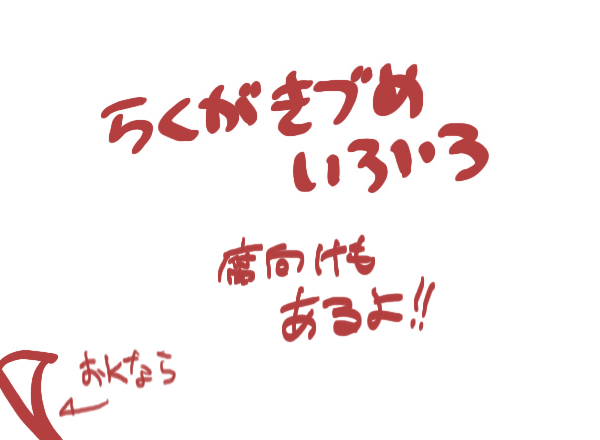 らくがきづめ
いろいろ
腐向けも
あるよ!!
おKなら